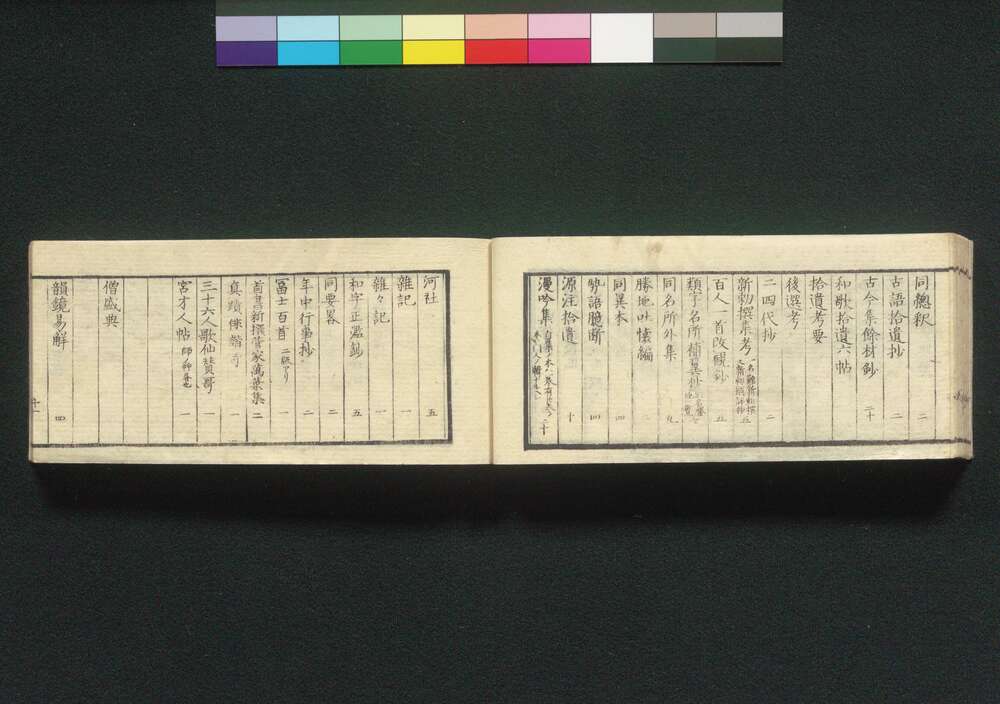 同總釈 二
古語拾遺抄 二
古今集餘材鈔 二十
和歌拾遺六帖
拾遺考要
後選考
二四代抄 二
新勅撰集考
百人一首改観鈔 五
類字名所補翼抄
同名所外集 九
勝地吐懐編 二
同異本 四
勢語臆断 四
源注拾遺 十
漫吟集
河社 五
雑記 一
雑々記 一
和字正濫鈔 五
同要畧 二
年中行事抄 二
冨士百首 二版アリ 一
首書新撰菅家萬葉集 二
真蹟 一
三十六人歌仙賛哥 一
宮才人帖 一
僧盛典
韻鏡易解 四
十一